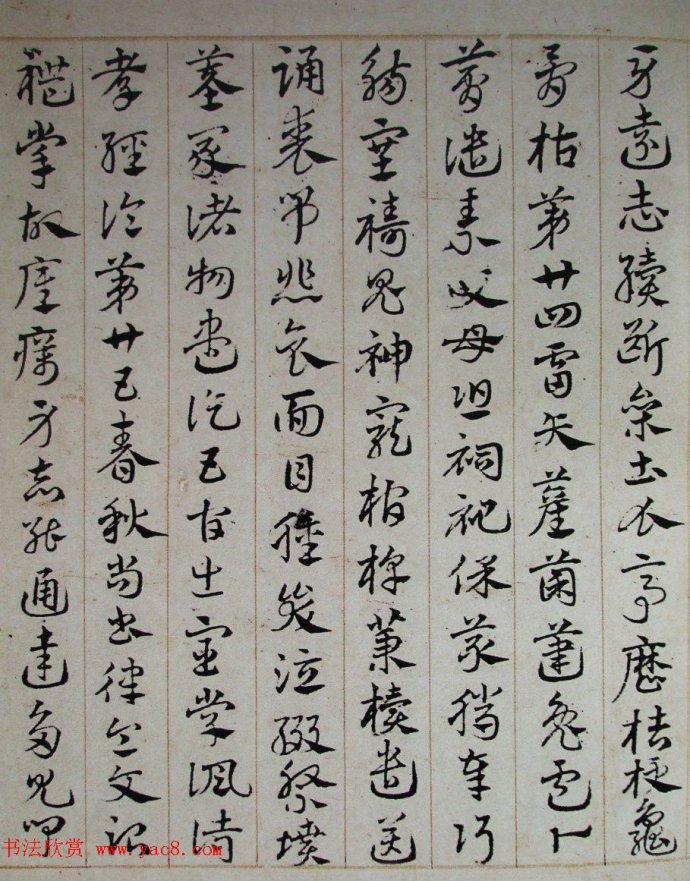 牙遠志續斷參土瓜亭歷桔梗龜
骨枯第廿四雷矢雚菌藎兔盧卜
夢譴祟父母恐祠祀叢臘奉行
觴塞禱鬼神寵棺槨櫝遣送
誦喪弔悲哀面目腫哭泣醊祭墳
墓冢諸物盡訖五官出宦學諷詩
孝經論第廿五春秋尚書律令文治
禮掌故底癘身志能通達多見聞
书法欣赏 www.yac8.com